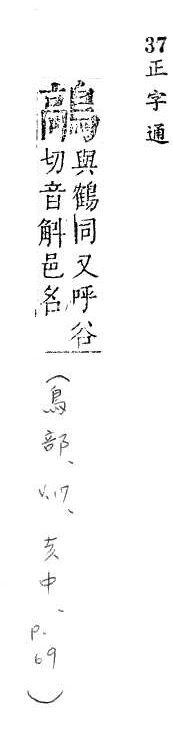 37 正字通
鶮 與鶴同又呼谷
切音斛邑名
(鳥部、v.17、亥中、p.69)